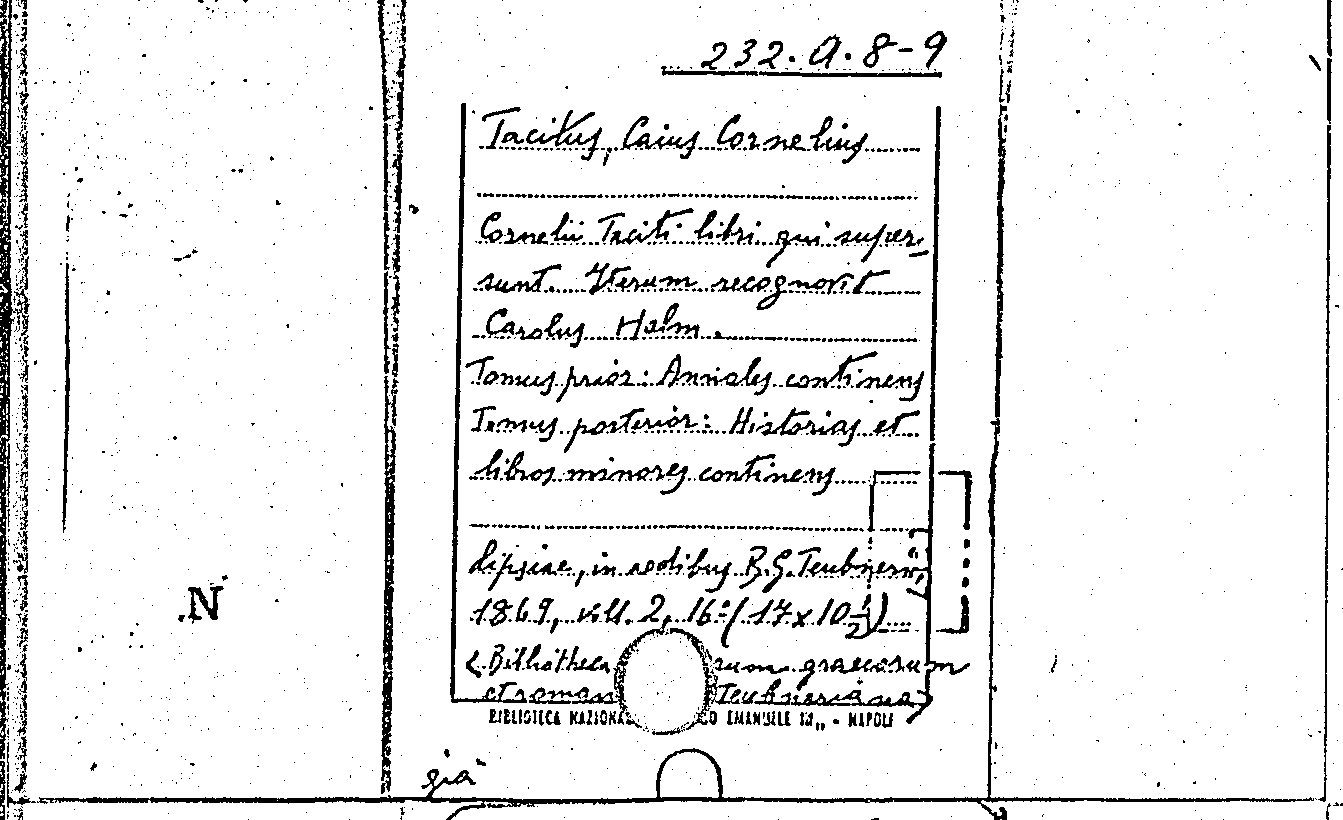 232.A.8-9
Tacitus, Caius Cornelius
Cornelii Taciti libri qui super-
sunt. Iterum recognovit
Carolus Halm.
Tomus prior: Annales continens
Tomus posterior: Historias et
libros minores continens
Lipsiae, in aedibus B.G. Teubneri,
1869, voll. 2, 16º (17x10½)
N.
(Bibliotheca rum graecorum
et roman Teubneriana)
BIBLIOTECA NAZIONA CO EMANUELE III„ - NAPOLI
già